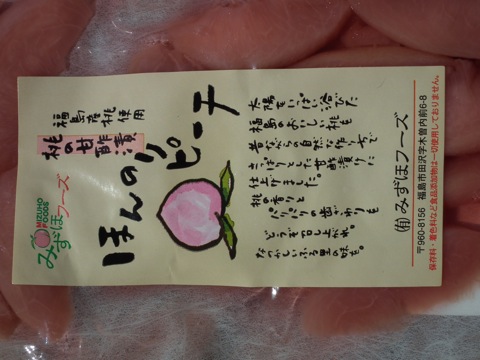 MIZUHO
FOODS
みずほフーズ
福島産桃使用
桃の甘酢漬
ほんのり
ピーチ
太陽をいっぱい浴びた
福島のおいしい桃を
昔ながらの自然な作り方で
さっぱりとした甘酢漬けに
仕上げました。
桃の香りと
パリパリの歯ざわりを
どうぞ召し上がれ。
なつかしいふる里の味を。
(有)みずほフーズ
〒960-8156 福島市田沢字木曽内前6-8
保存料・着色料など食品添加物は一切使用しておりません。